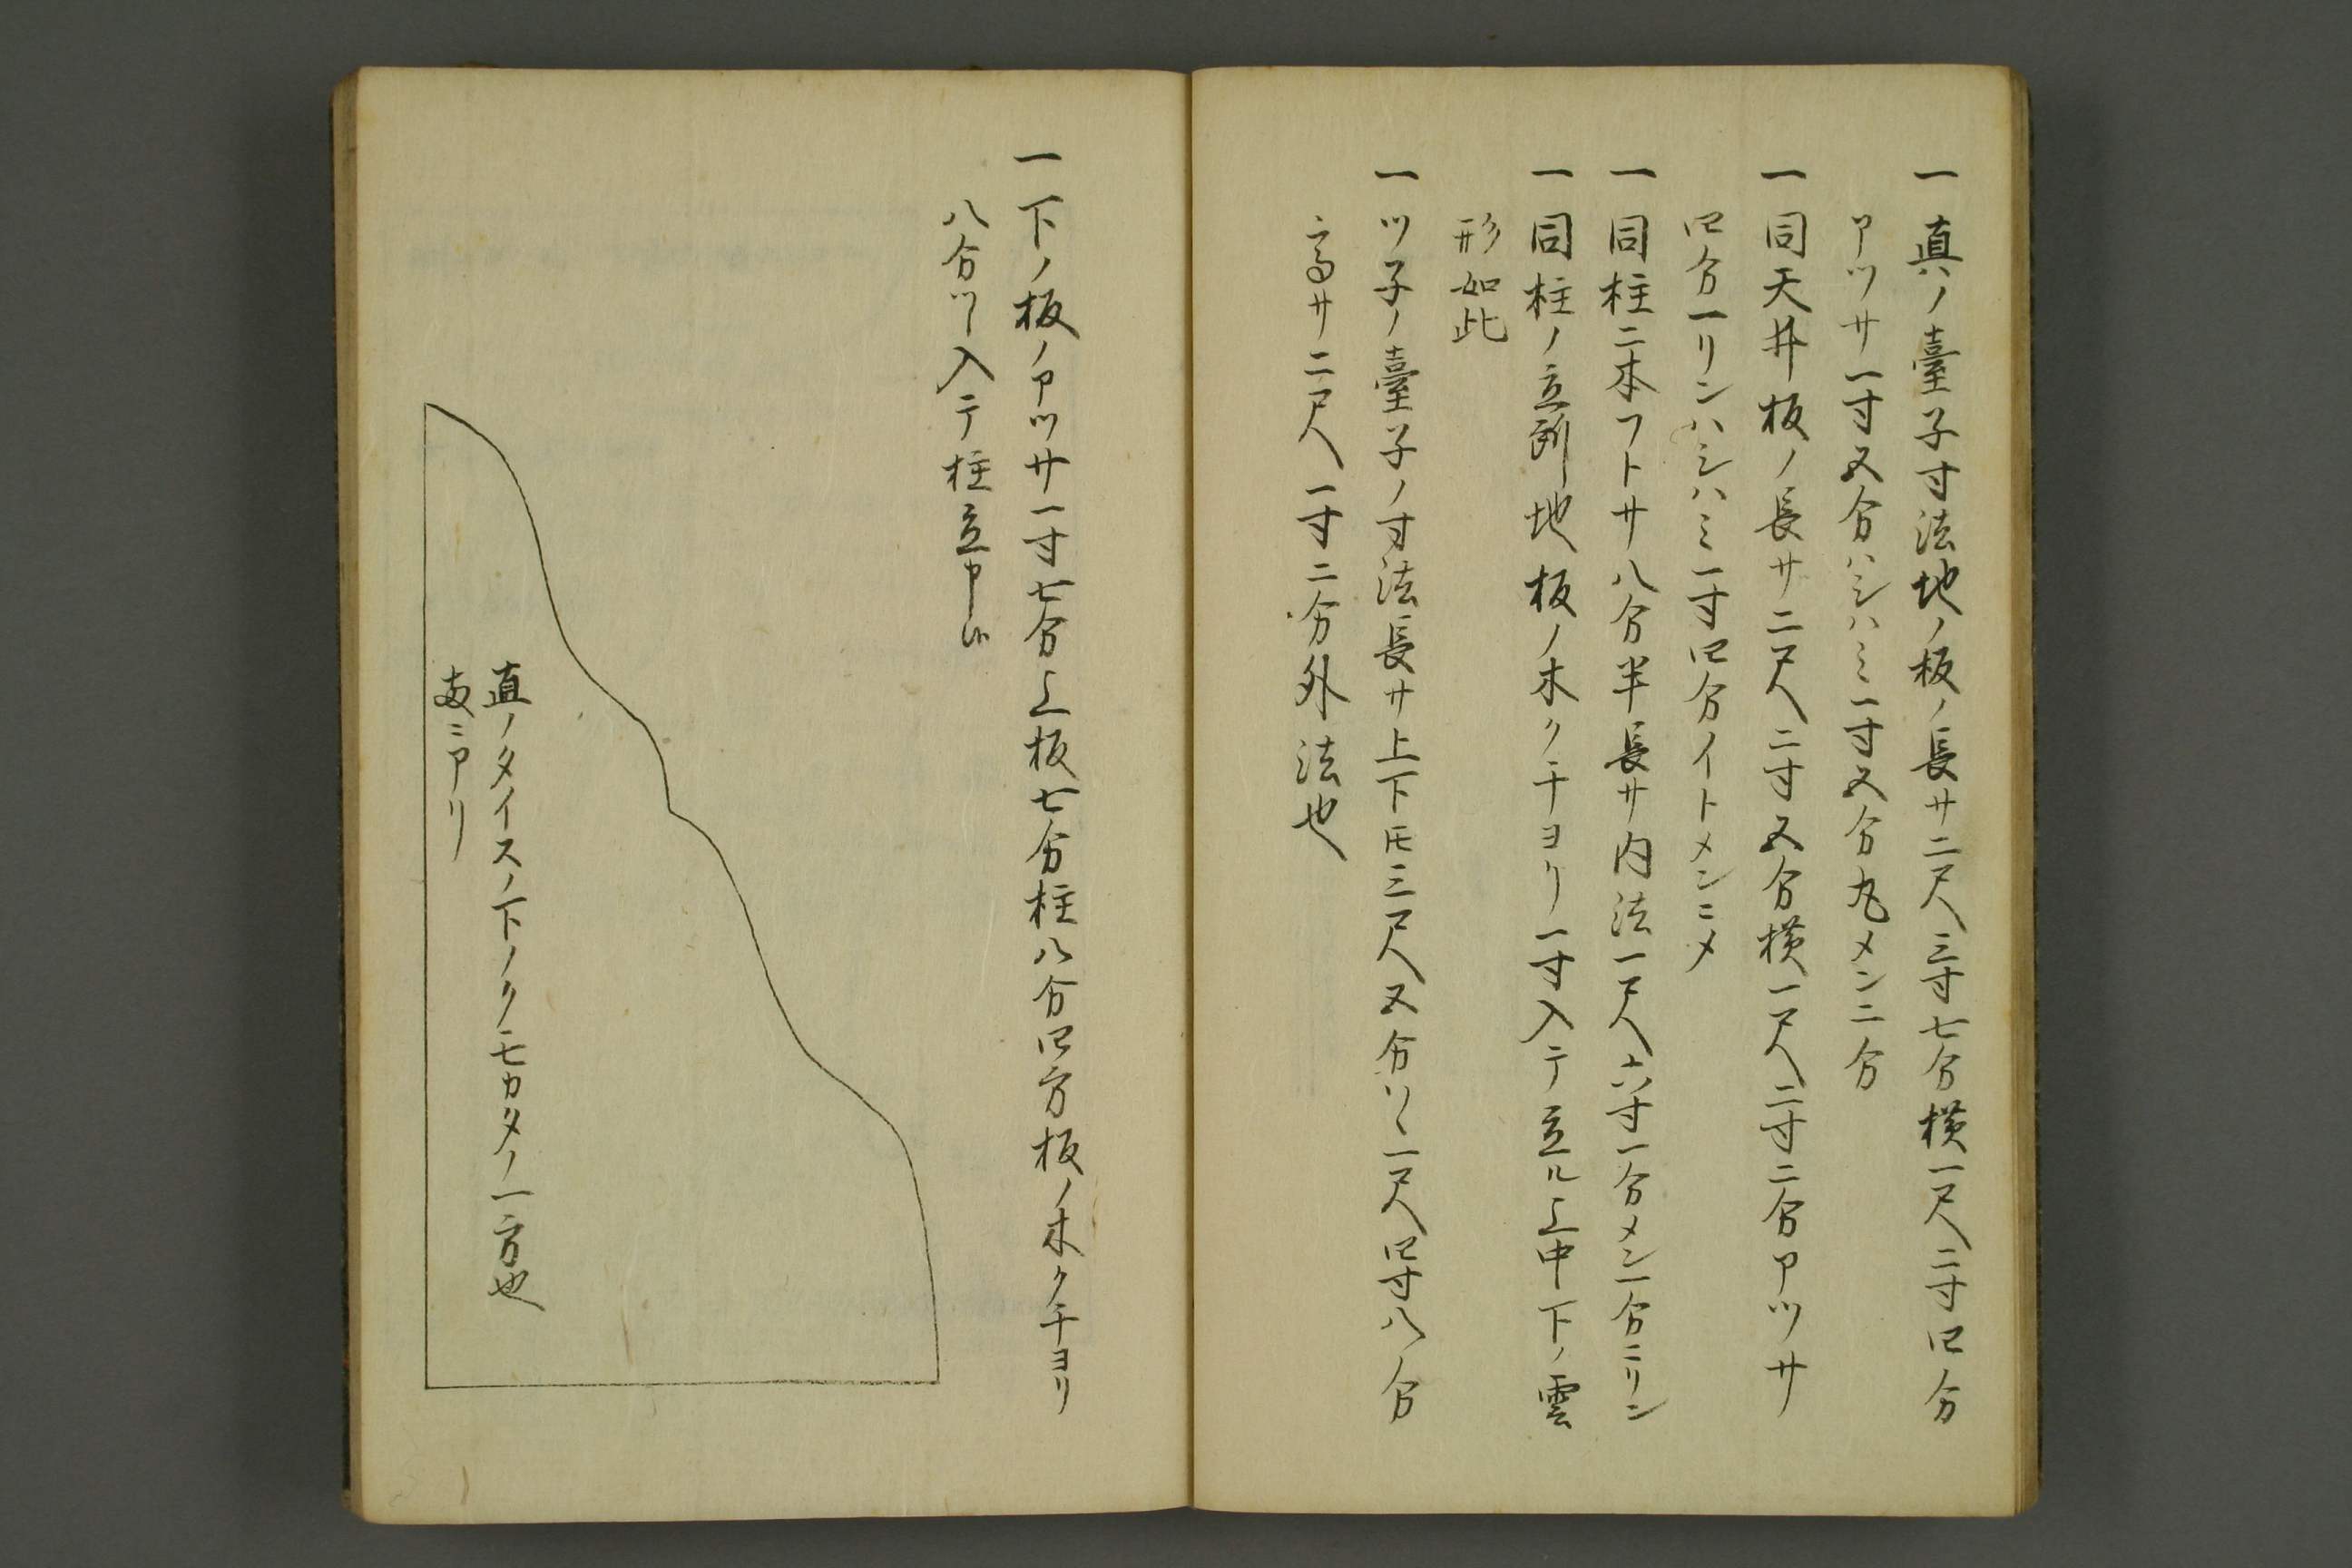 一真ノ臺子寸法地ノ板ノ長サ二尺三寸七分横一尺二寸四分
アツサ一寸五分ハシハミ一寸五分丸メン二分
一同天井板ノ長サ二尺二寸五分横一尺二寸二分アツサ
四分一リンハシハミ一寸四分イトメンニメ
一同柱二本フトサ八分半長サ内法一尺六寸一分メン一分ニリン
一同柱ノ立所地板ノ木クチヨリ一寸入テ立ル上中下ノ雲
形如此
一ツ子ノ臺子ノ寸法長サ上下モ三尺五分ツヽ一尺四寸八分
高サ二尺一寸二分外法也
一下ノ板ノアツサ一寸七分上板七分柱八分四方板ノ木クチヨリ
八分ツヽ入テ柱立申候
直ノタイスノ下ノクモカタノ一方也
ミアリ